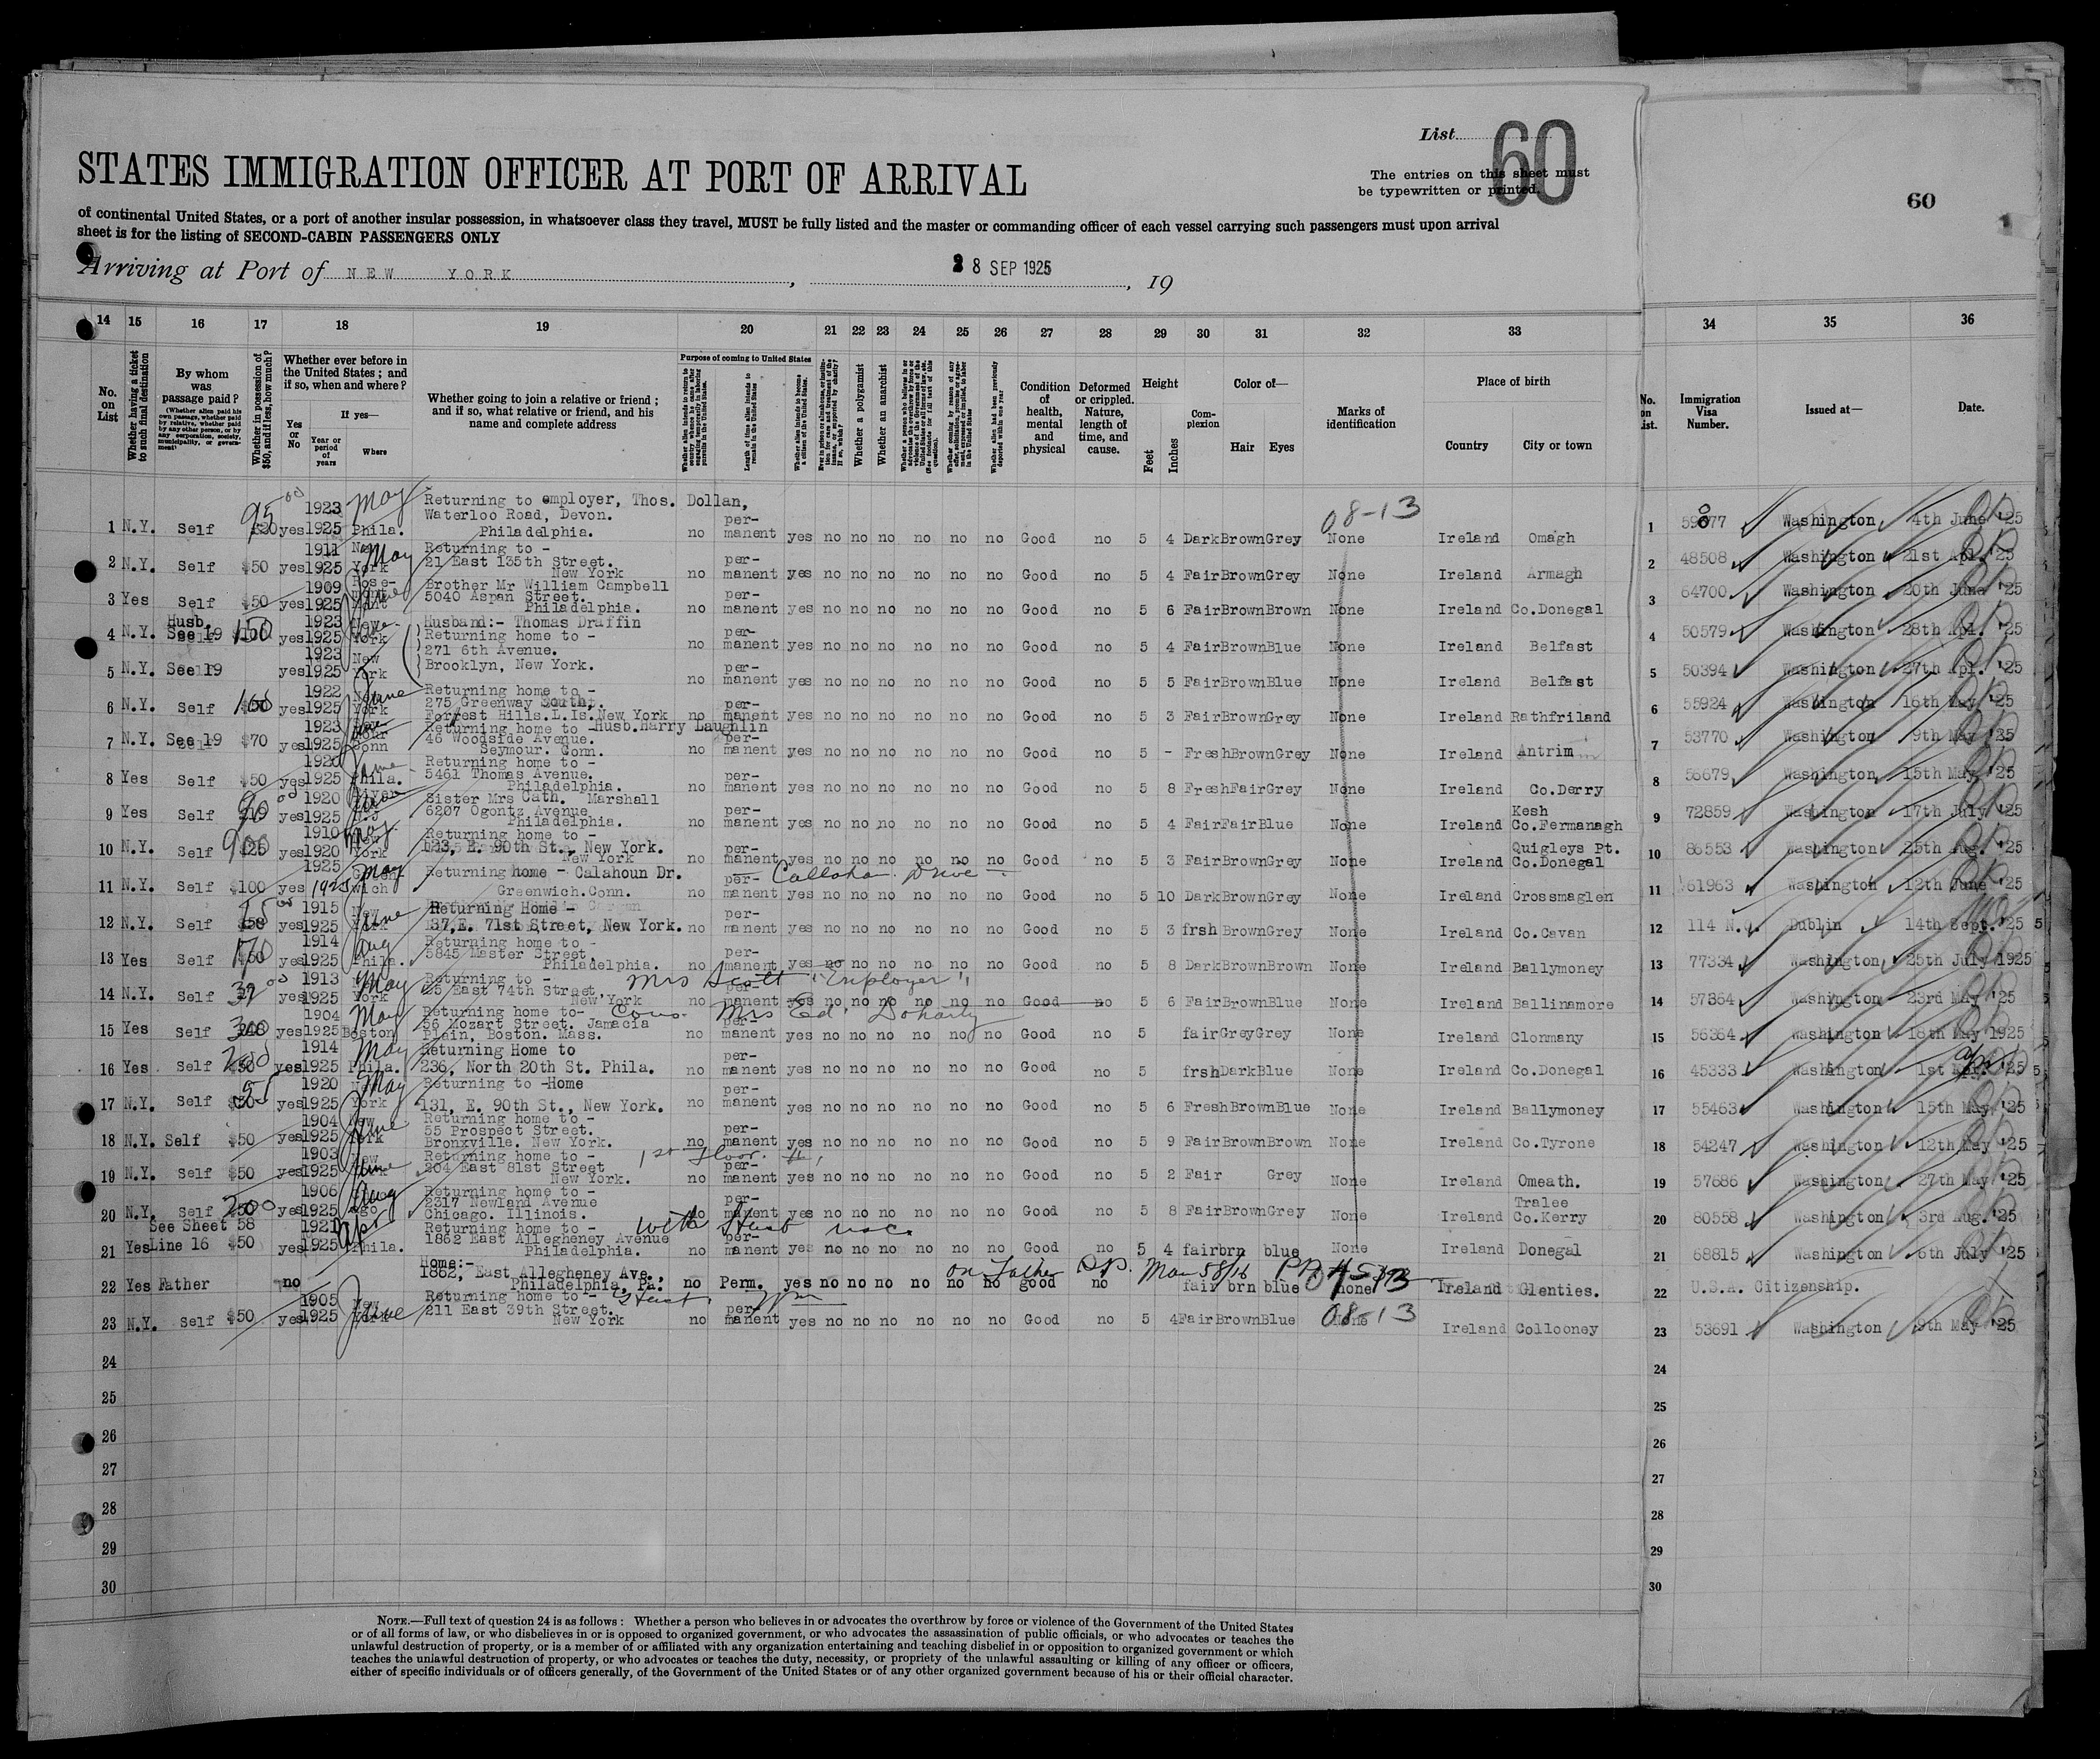 List 60
STATES IMMIGRATION OFFICER AT PORT OF ARRIVAL
The entries on this sheet must
be typewritten or printed.
60
of continental United States, or a port of another insular possession, in whatsoever class they travel, MUST be fully listed and the master or commanding officer of each vessel carrying such passengers must upon arrival
sheet is for the listing of SECOND-CABIN PASSENGERS ONLY
Arriving at Port of NEW YORK, 28 SEP 1925, 19
14 15 16 17 18 19 20 21 22 23 24 25 26 27 28 29 30 31 32 33 34 35 36
No. on List
Whether having a ticket to such final destination
By whom was passage paid?
(Whether alien paid his own passage, whether paid by relative, whether paid by any other person, or by any corporation, society, municipality, or government)
Whether in possession of $50, and if less, how much?
Whether ever before in the United States; and if so, when and where?
Yes or No
If yes—
Year or period of years
Where
Whether going to join a relative or friend; and if so, what relative or friend, and his name and complete address
Purpose of coming to United States
Length of time alien intends to remain in the United States
Whether alien intends to become a citizen of the United States
Whether a polygamist
Whether an anarchist
Whether alien has been previously deported within one year
Condition of health, mental and physical
Deformed or crippled. Nature, length of time, and cause.
Height
Feet
Inches
Complexion
Color of—
Hair
Eyes
Marks of identification
Place of birth
Country
City or town
No. on List.
Immigration Visa Number.
Issued at—
Date.
Returning to employer, Thos. Dollan,
1923 May Waterloo Road, Devon. 08-13
1 N.Y. Self yes 1925 Phila. Philadelphia. no permanent yes no no no no no no Good no 5 4 Dark Brown Grey None Ireland Omagh 1 Washington 4th June '25
1911 New May Returning to -
2 N.Y. Self $50 yes 1925 York 21 East 135th Street. New York no permanent yes no no no no no no Good no 5 4 Fair Brown Grey None Ireland Armagh 2 48508 Washington 21st Apl. '25
1909 Brother Mr William Campbell
3 Yes Self $50 yes 1925 5040 Aspan Street. Philadelphia. no permanent yes no no no no no no Good no 5 6 Fair Brown Brown None Ireland Co.Donegal 3 64700 Washington 20th June '25
Husb. 1923 Husband:- Thomas Draffin
4 N.Y. See 19 150 yes 1925 York Returning home to - no permanent yes no no no no no no Good no 5 4 Fair Brown Blue None Ireland Belfast 4 50579 Washington 28th Apl. '25
1923 New 271 6th Avenue.
5 N.Y. See 19 yes 1925 York Brooklyn, New York. no permanent yes no no no no no no Good no 5 5 Fair Brown Blue None Ireland Belfast 5 50394 Washington 27th Apl. '25
1922 June Returning home to -
6 N.Y. Self yes 1925 York 275 Greenway South,
Forrest Hills.L.Is.New York no permanent yes no no no no no no Good no 5 3 Fair Brown Grey None Ireland Rathfriland 6 55924 Washington 16th May '25
1923 Returning home to -Husb.Harry Laughlin
7 N.Y. See 19 $70 yes 1925 Conn 46 Woodside Avenue.
Seymour. Conn. no permanent yes no no no no no no Good no 5 - Fresh Brown Grey None Ireland Antrim 7 53770 Washington 9th May '25
Returning home to -
8 Yes Self $50 yes 1925 Phila. 5461 Thomas Avenue.
Philadelphia. no permanent yes no no no no no no Good no 5 8 Fresh Fair Grey None Ireland Co.Derry 8 Washington 15th May '25
1920 Sister Mrs Cath. Marshall
9 Yes Self yes 1925 N.J 6207 Ogontz Avenue
Philadelphia. no permanent yes no no no no no no Good no 5 4 Fair Fair Blue None Ireland Kesh Co.Fermanagh 9 72859 Washington 17th July '25
1910 May Returning home to -
10 N.Y. Self yes 1920 York 123, E. 90th St., New York.
New York no permanent yes no no no no no no Good no 5 3 Fair Brown Grey None Ireland Quigleys Pt. Co.Donegal 10 86553 Washington 25th Aug. '25
1925 May Returning home - Calahoun Dr. Callahan Drive
11 N.Y. Self $100 yes 1925 Greenwich Greenwich.Conn. no permanent yes no no no no no no Good no 5 10 Dark Brown Grey None Ireland Crossmaglen 11 61963 Washington 12th June '25
1915 New June Returning Home -
12 N.Y. Self yes 1925 York 137,E. 71st Street, New York. no permanent yes no no no no no no Good no 5 3 frsh Brown Grey None Ireland Co.Cavan 12 114 N.Q. Dublin 14th Sept. '25
1914 Aug Returning home to -
13 Yes Self yes 1925 Phila. 5845 Master Street.
Philadelphia. no permanent yes no no no no no no Good no 5 8 Dark Brown Brown None Ireland Ballymoney 13 77334 Washington 25th July 1925
1913 May Returning to - Mrs Scott "Employer"
14 N.Y. Self yes 1925 York 25 East 74th Street,
New York no permanent yes no no no no no no Good no 5 6 Fair Brown Blue None Ireland Ballinamore 14 57364 Washington 23rd May '25
1904 May Returning home to- Cous. Mrs Ed. Doharty
15 Yes Self yes 1925 Boston 56 Mozart Street. Jamacia
Plain, Boston. Mass. no permanent yes no no no no no no Good no 5 fair Grey Grey None Ireland Clonmany 15 56364 Washington 18th May 1925
1914 May Returning Home to
16 Yes Self yes 1925 Phila. 236, North 20th St. Phila. no permanent yes no no no no no no Good no 5 frsh Dark Blue None Ireland Co.Donegal 16 45333 Washington 1st Apr '25
1920 May Returning to -Home
17 N.Y. Self yes 1925 York 131, E. 90th St., New York. no permanent yes no no no no no no Good no 5 6 Fresh Brown Blue None Ireland Ballymoney 17 55463 Washington 15th May '25
1904 New June Returning home to -
18 N.Y. Self $50 yes 1925 York 55 Prospect Street.
Bronxville. New York. no permanent yes no no no no no no Good no 5 9 Fair Brown Brown None Ireland Co.Tyrone 18 54247 Washington 12th May '25
1903 New June Returning home to - 1st Floor.
19 N.Y. Self $50 yes 1925 York 204 East 81st Street
New York. no permanent yes no no no no no no Good no 5 2 Fair Grey None Ireland Omeath. 19 57686 Washington 27th May '25
1906 Aug Returning home to -
20 N.Y. Self 200 yes 1925 2317 Newland Avenue
Chicago. Illinois. no permanent yes no no no no no no Good no 5 8 Fair Brown Grey None Ireland Tralee Co.Kerry 20 80558 Washington 3rd Aug. '25
See Sheet 58 1921 Apr Returning home to - with
21 Yes Line 16 $50 yes 1925 Phila. 1862 East Allegheney Avenue
Philadelphia. no permanent yes no no no no no no Good no 5 4 fair brn blue None Ireland Donegal 21 68815 Washington 6th July '25
Home:- on Father
22 Yes Father no 1862, East Allegheney Ave.,
Philadelphia, Pa. no Perm. yes no no no no no no good no fair brn blue none Ireland Glenties. 22 U.S.A. Citizenship.
1905 New June Returning home to -
23 N.Y. Self $50 yes 1925 York 211 East 39th Street.
New York no permanent yes no no no no no no Good no 5 4 Fair Brown Blue 08-13 Ireland Collooney 23 53691 Washington 9th May '25
24 24
25 25
26 26
27 27
28 28
29 29
30 30
NOTE.—Full text of question 24 is as follows: Whether a person who believes in or advocates the overthrow by force or violence of the Government of the United States
or of all forms of law, or who disbelieves in or is opposed to organized government, or who advocates the assassination of public officials, or who advocates or teaches the
unlawful destruction of property, or is a member of or affiliated with any organization entertaining and teaching disbelief in or opposition to organized government or which
teaches the unlawful destruction of property, or who advocates or teaches the duty, necessity, or propriety of the unlawful assaulting or killing of any officer or officers,
either of specific individuals or of officers generally, of the Government of the United States or of any other organized government because of his or their official character.